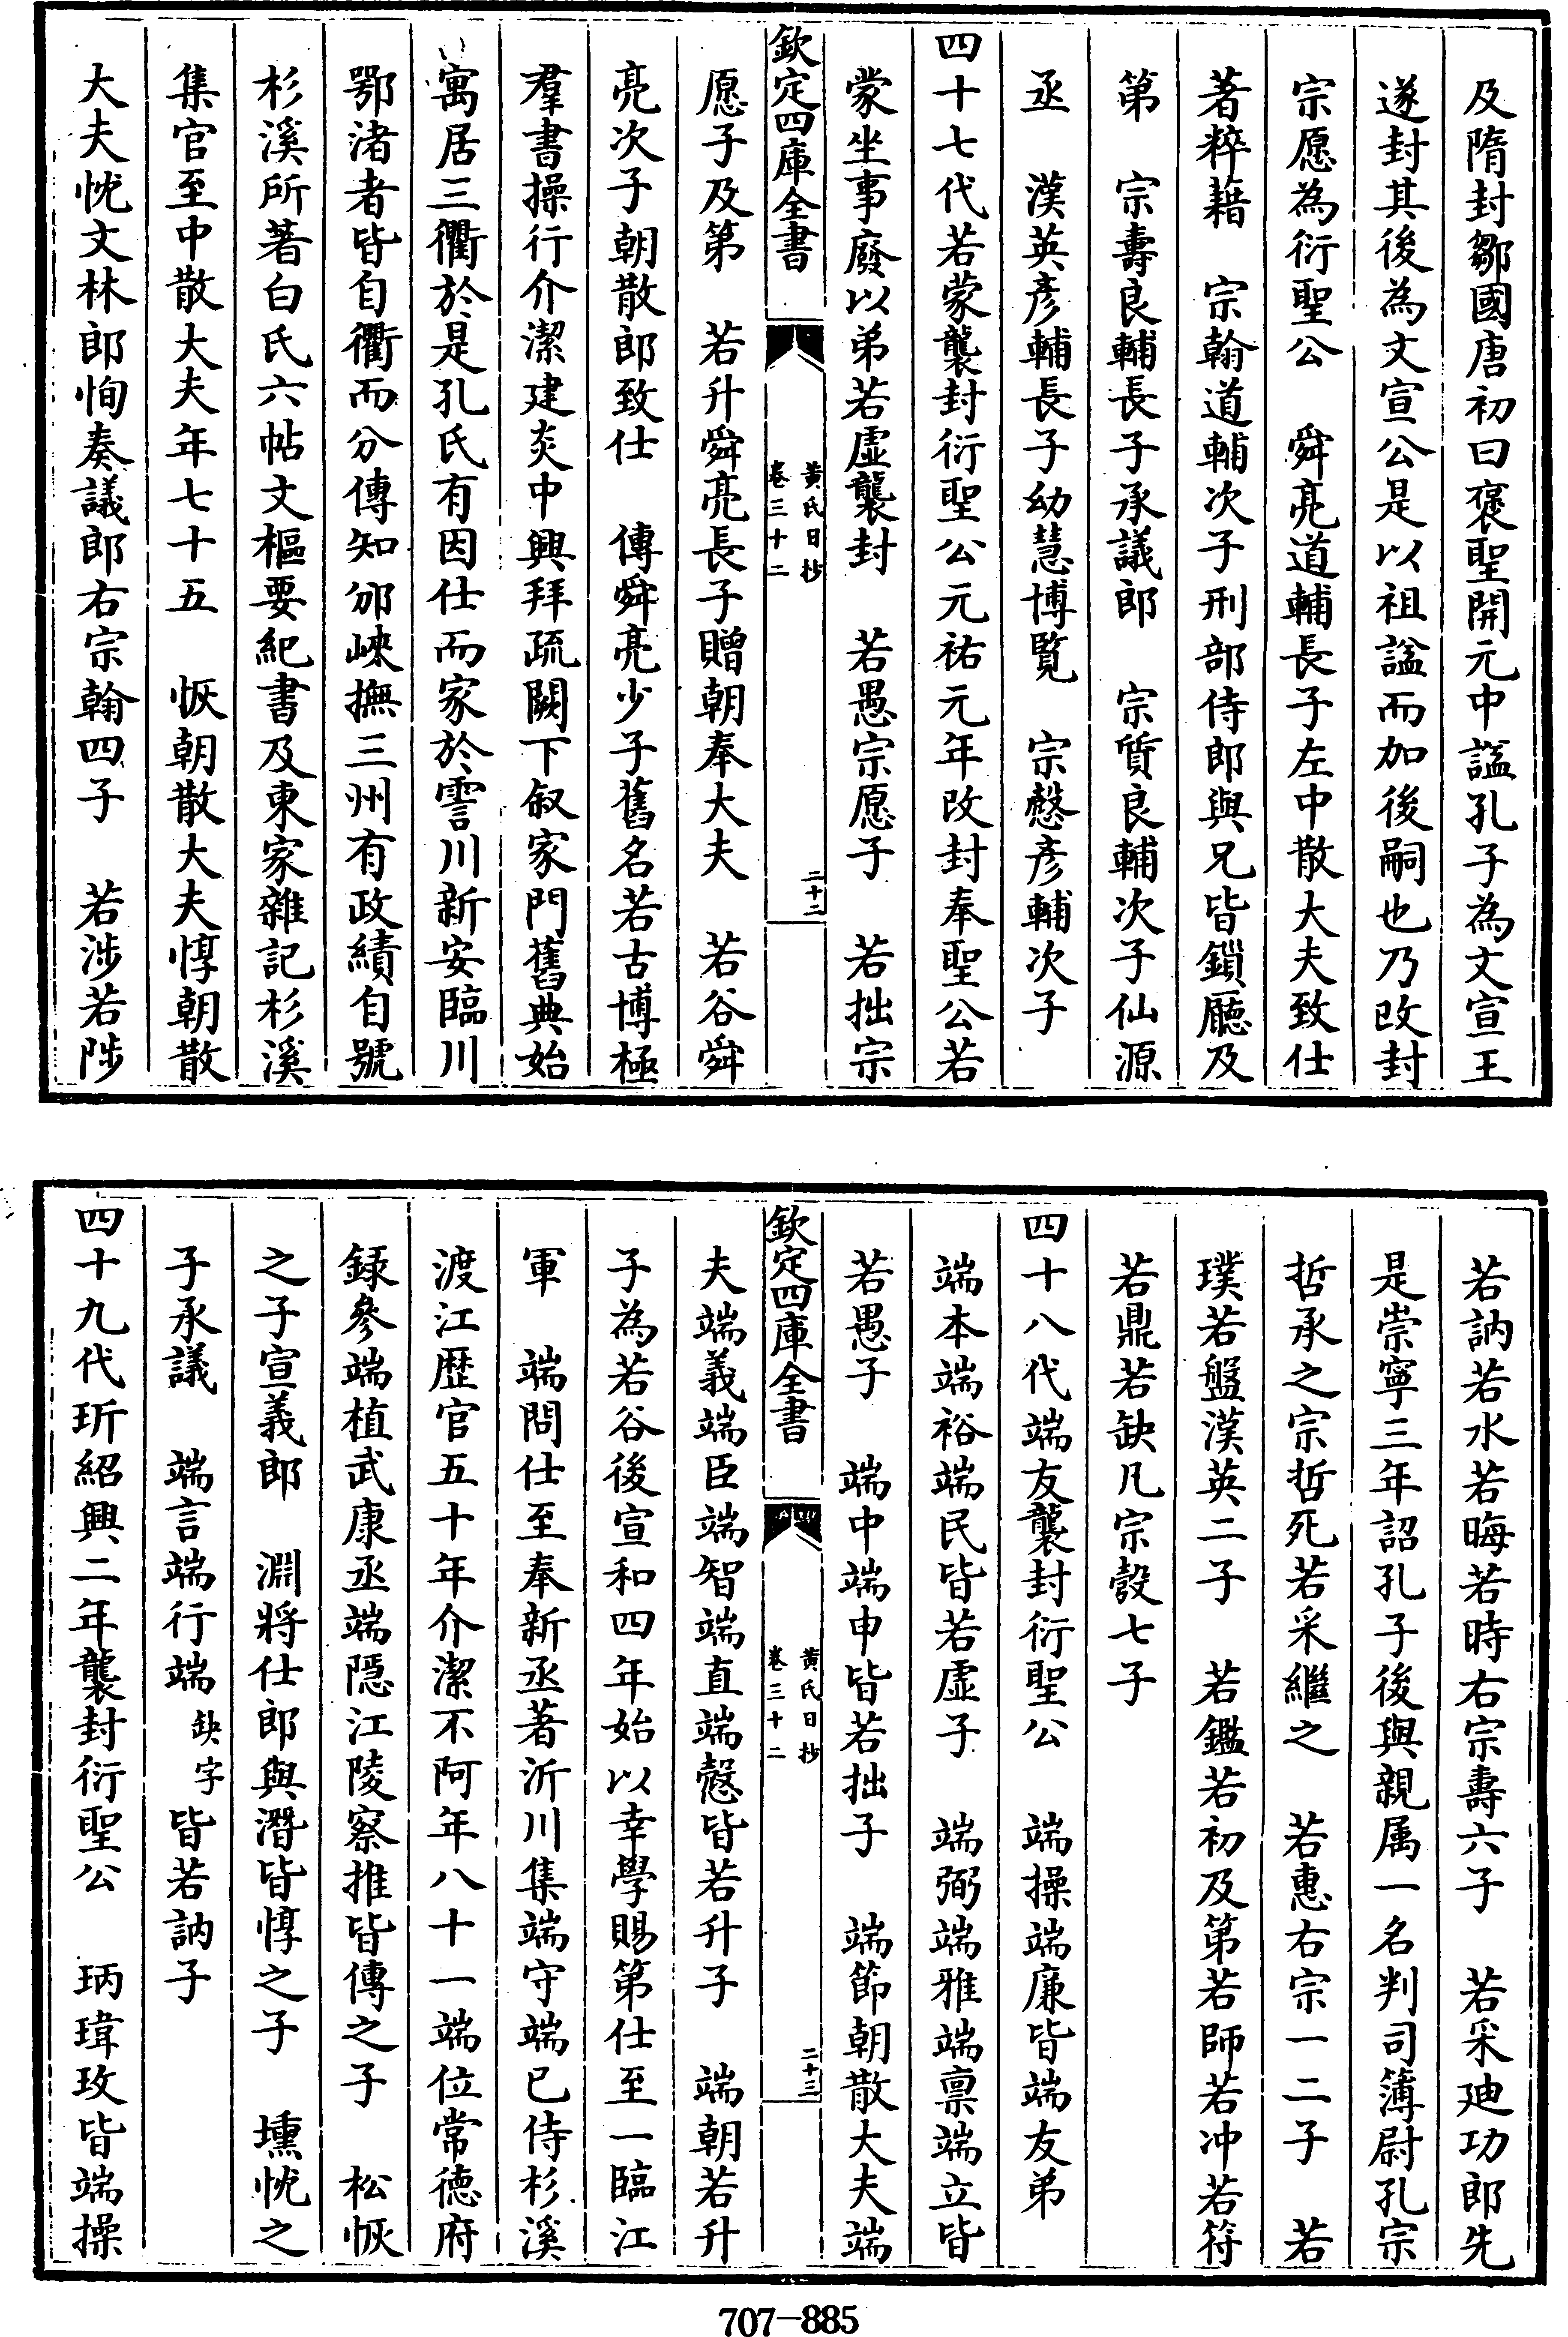 及隋封鄒國唐初曰褒聖開元中諡孔子為文宣王
遂封其後為文宣公是以祖諡而加後嗣也乃改封
宗愿為衍聖公　舜亮道輔長子左中散大夫致仕
著粹藉　宗翰道輔次子刑部侍郎與兄皆鎖廳及
第　宗壽良輔長子承議郎　宗質良輔次子仙源
丞　漢英彥輔長子幼慧博覽　宗愨彥輔次子
四十七代若蒙襲封衍聖公元祐元年改封奉聖公若
蒙坐事廢以弟若虛襲封　若愚宗愿子　若拙宗
欽定四庫全書
黃氏日抄
卷三十二
二十二
愿子及第　若升舜亮長子贈朝奉大夫　若谷舜
亮次子朝散郎致仕　傳舜亮少子舊名若古博極
羣書操行介潔建炎中興拜疏闕下叙家門舊典始
寓居三衢於是孔氏有因仕而家於霅川新安臨川
鄂渚者皆自衢而分傳知邠峽撫三州有政績自號
杉溪所著白氏六帖文樞要紀書及東家雜記杉溪
集官至中散大夫年七十五　恢朝散大夫惇朝散
大夫忱文林郎恂奏議郎右宗翰四子　若涉若陟
若訥若水若晦若時右宗壽六子　若采廸功郎先
是崇寧三年詔孔子後與親属一名判司簿尉孔宗
哲承之宗哲死若采繼之　若惠右宗一二子　若
璞若盤漢英二子　若鑑若初及第若師若冲若符
若鼎若缺凡宗愨七子
四十八代端友襲封衍聖公　端操端廉皆端友弟
端本端裕端民皆若虛子　端弼端雅端禀端立皆
若愚子　端中端申皆若拙子　端節朝散大夫端
欽定四庫全書
黃氏日抄
卷三十二
二十三
夫端義端臣端智端直端愨皆若升子　端朝若升
子為若谷後宣和四年始以幸學賜第仕至一臨江
軍　端問仕至奉新丞著沂川集端守端已侍杉溪
渡江歷官五十年介潔不阿年八十一端位常德府
録參端植武康丞端隠江陵察推皆傳之子　松恢
之子宣義郎　淵將仕郎與潛皆惇之子　壎忱之
子承議　端言端行端缺字皆若訥子
四十九代玠紹興二年襲封衍聖公　㻂瑋玫皆端操
707-885